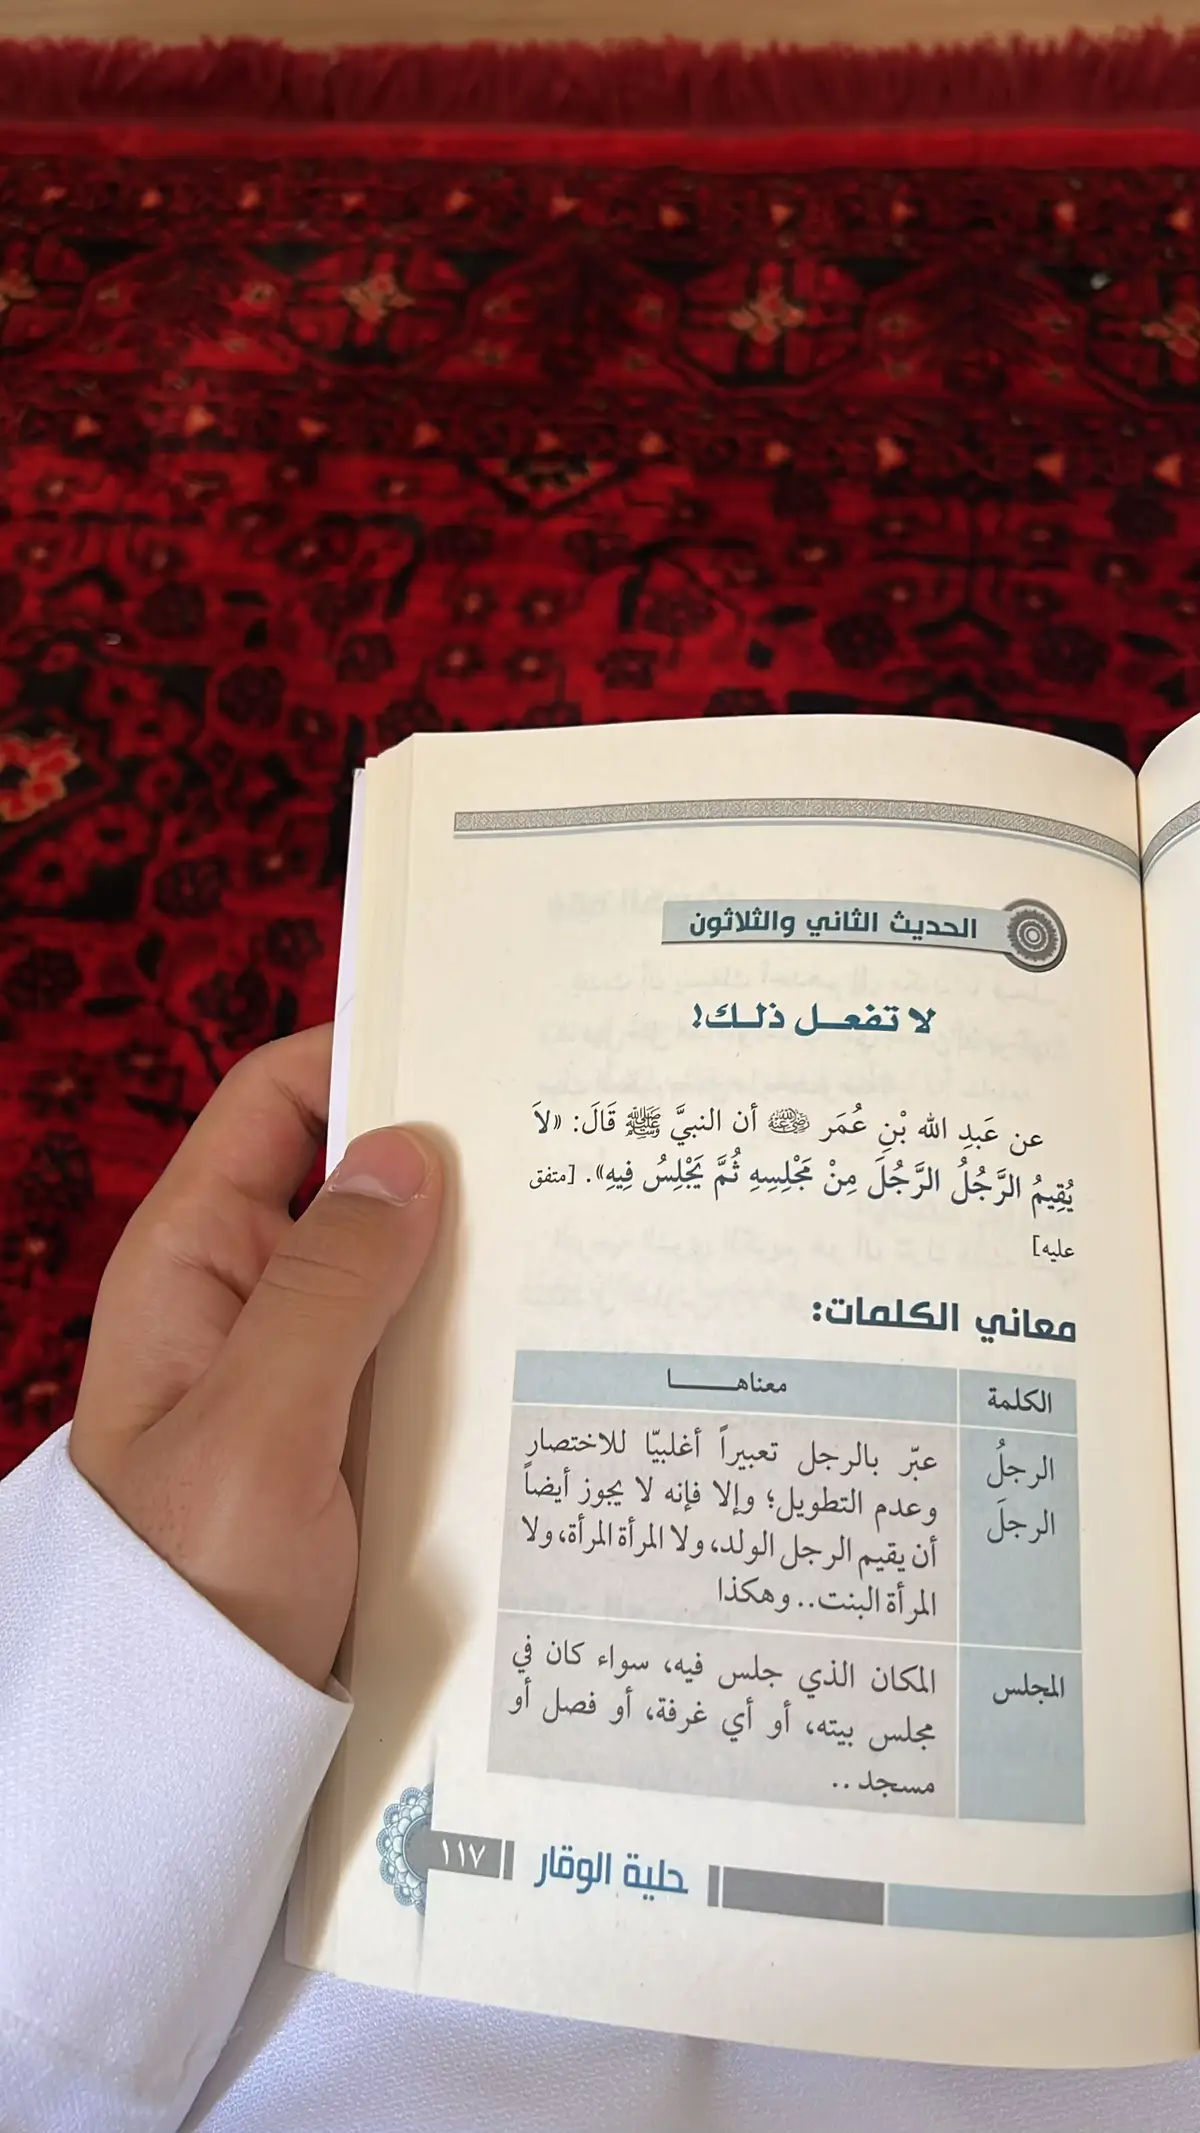 الحديث الثاني والثلاثون
لا تفعـــل ذلـــك!
عن عَبدِ الله بْنِ عُمَر رضي الله عنه أن النبيَّ ﷺ قَالَ: «لاَ
يُقِيمُ الرَّجُلُ الرَّجُلَ مِنْ مَجْلِسِهِ ثُمَّ يَجْلِسُ فِيهِ». [متفق
عليه]
معاني الكلمات:
الكلمة معناهـــــــا
الرجلُ
الرجلَ
عبّر بالرجل تعبيراً أغلبيّا للاختصار
وعدم التطويل؛ وإلا فإنه لا يجوز أيضاً
أن يقيم الرجل الولد، ولا المرأة المرأة، ولا
المرأة البنت.. وهكذا
المجلس
المكان الذي جلس فيه، سواء كان في
مجلس بيته، أو أي غرفة، أو فصل أو
مسجد..
حلية الوقار ١١٧